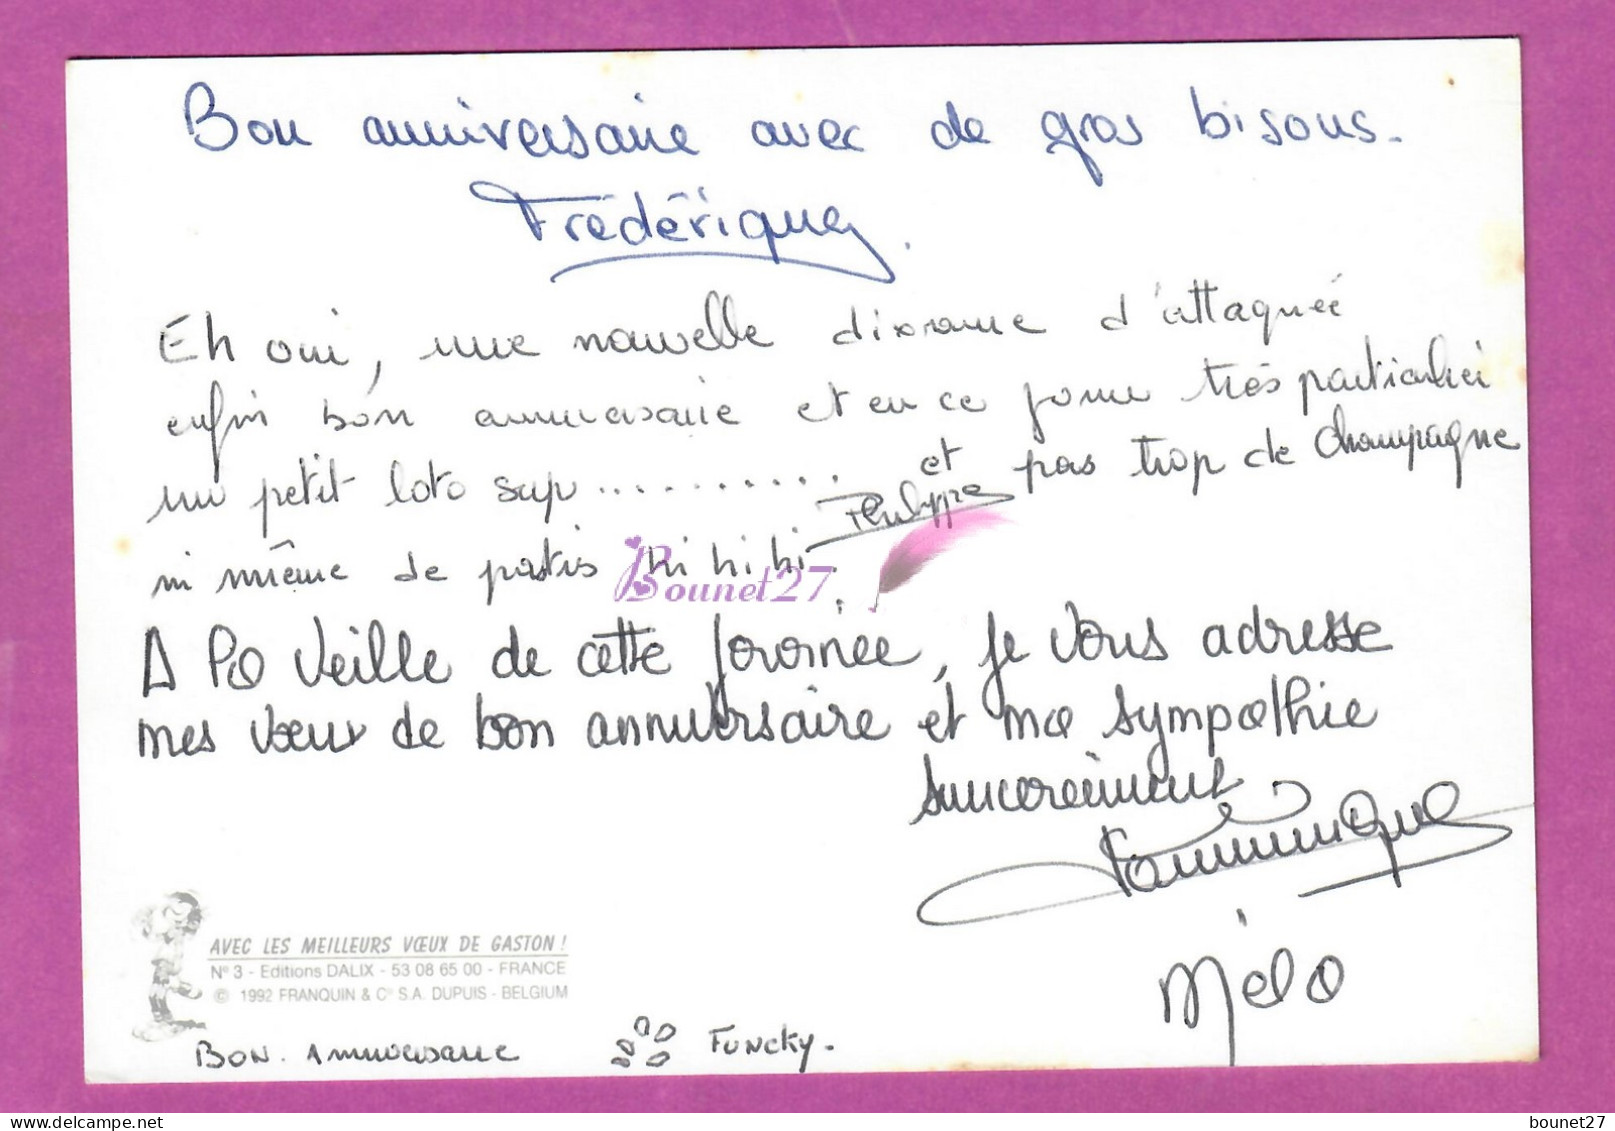 Bon anniversaire avec de gros bisous.
Frédérique.
Eh oui, une nouvelle dixaine d'attaquée
enfin bon anniversaire et en ce jour très particulier
un petit loto sup .......... et pas trop de champagne
Philippe
ni même de pastis hi hi hi.
Bounet27
A la veille de cette journée, je vous adresse
mes vœux de bon anniversaire et ma sympathie
sincèrement
Dominique
Mélo
AVEC LES MEILLEURS VŒUX DE GASTON !
N° 3 - Editions DALIX - 53 08 65 00 - FRANCE
© 1992 FRANQUIN & C° S.A. DUPUIS - BELGIUM
BON. Anniversaire Funcky.
bounet27